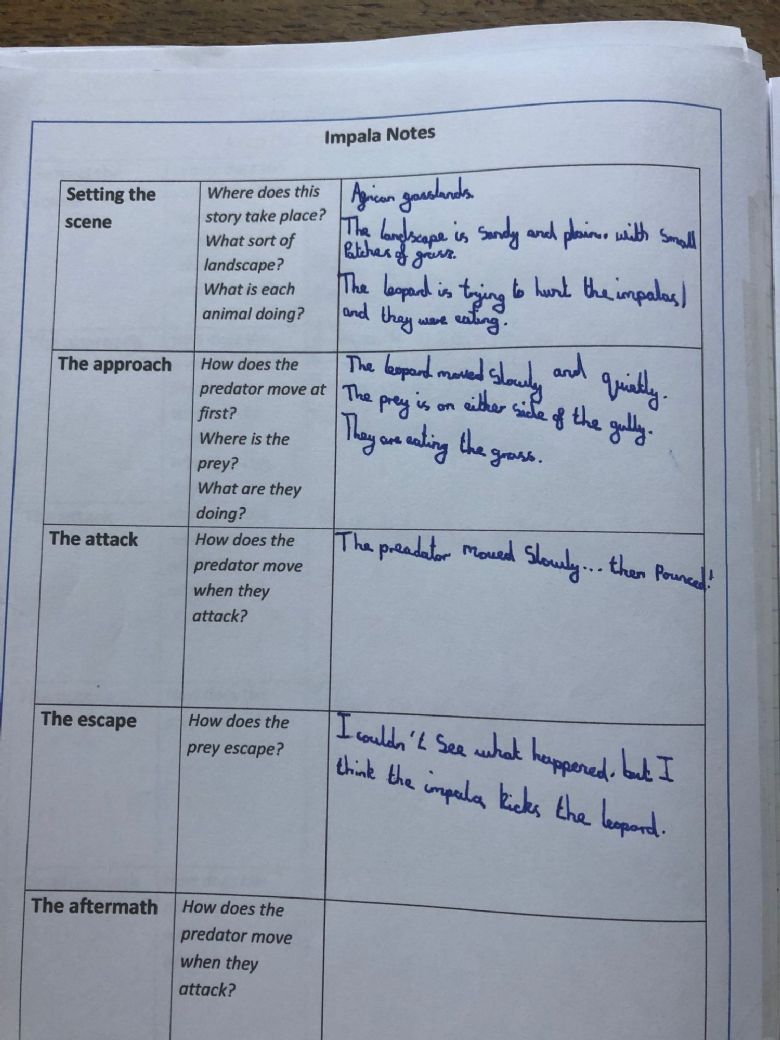 Impala Notes
Setting the
scene
Where does this
story take place?
What sort of
landscape?
What is each
animal doing?
African gasslands.
The landscape is sandy and plain. with small
Patches of grass.
The leopard is trying to hunt the impalas
and they were eating.
The approach
How does the
predator move at
first?
Where is the
prey?
What are they
doing?
The leopard moved slowly and quietly.
The prey is on either side of the gully.
They are eating the grass.
The attack
How does the
predator move
when they
attack?
The preadator moved Slowly... then Pounced!
The escape
How does the
prey escape?
I couldn't See what happened. but I
think the impala kicks the leopard.
The aftermath
How does the
predator move
when they
attack?